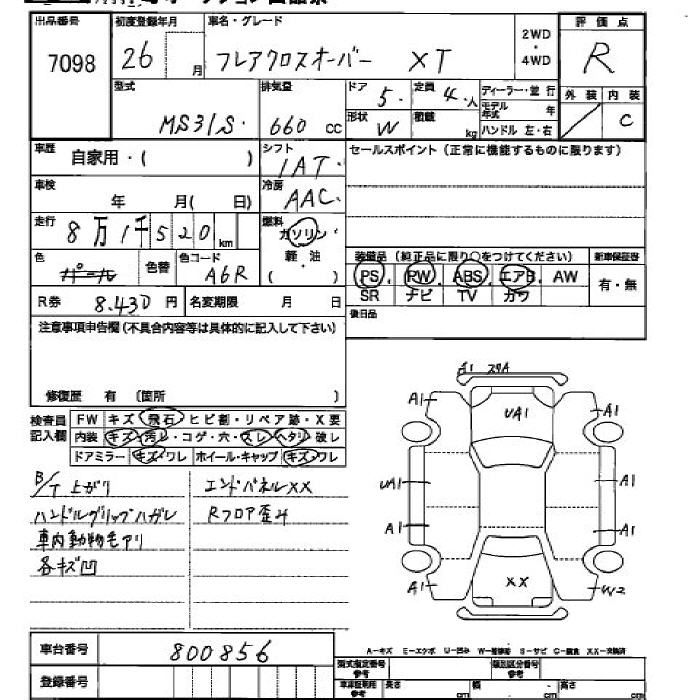 出品番号 初度登録年月 車名・グレード 2WD ・ 4WD 評価点
7098 26 月 フレアクロスオーバー XT R
型式 排気量 ドア 5. 定員 4. 人 ディーラー・並行 外装 内装
MS31S. 660 cc 形状 W 積載 kg モデル年式 年 C
ハンドル 左・右
車歴 自家用・( ) シフト 1AT. セールスポイント(正常に機能するものに限ります)
車検 年 月( 日) 冷房 AAC.
走行 8万1千520km 燃料 ガソリン 軽・油 ( )
色 パール 色替 色コード A6R
装備品(純正品に限り○をつけてください) 新車保証書
PS. RW. ABS. エアB. AW 有・無
SR ナビ TV カワ
R券 8.430円 名変期限 月 日
後日品
注意事項申告欄(不具合内容等は具体的に記入して下さい)
修復歴 有 (箇所 )
検査員記入欄 FW キズ・飛石・ヒビ割・リペア跡・X要
内装 キズ・汚レ・コゲ・穴・スレ・ヘタリ・破レ
ドアミラー キズ・ワレ ホイール・キャップ キズ・ワレ
B/T 上がり エンドパネルXX
ハンドルグリップハガレ Rフロア歪み
車内動物毛アリ
各キズ凹
A1 UA1 A1
UA1 A1
A1 A1
A1 XX W2
A-キズ E-エクボ U-凹み W-補修跡 S-サビ C-腐食 XX-交換済
車台番号 800856
登録番号
型式指定番号 参考 類別区分番号 参考
車庫証明用 参考 長さ cm 幅 cm 高さ cm